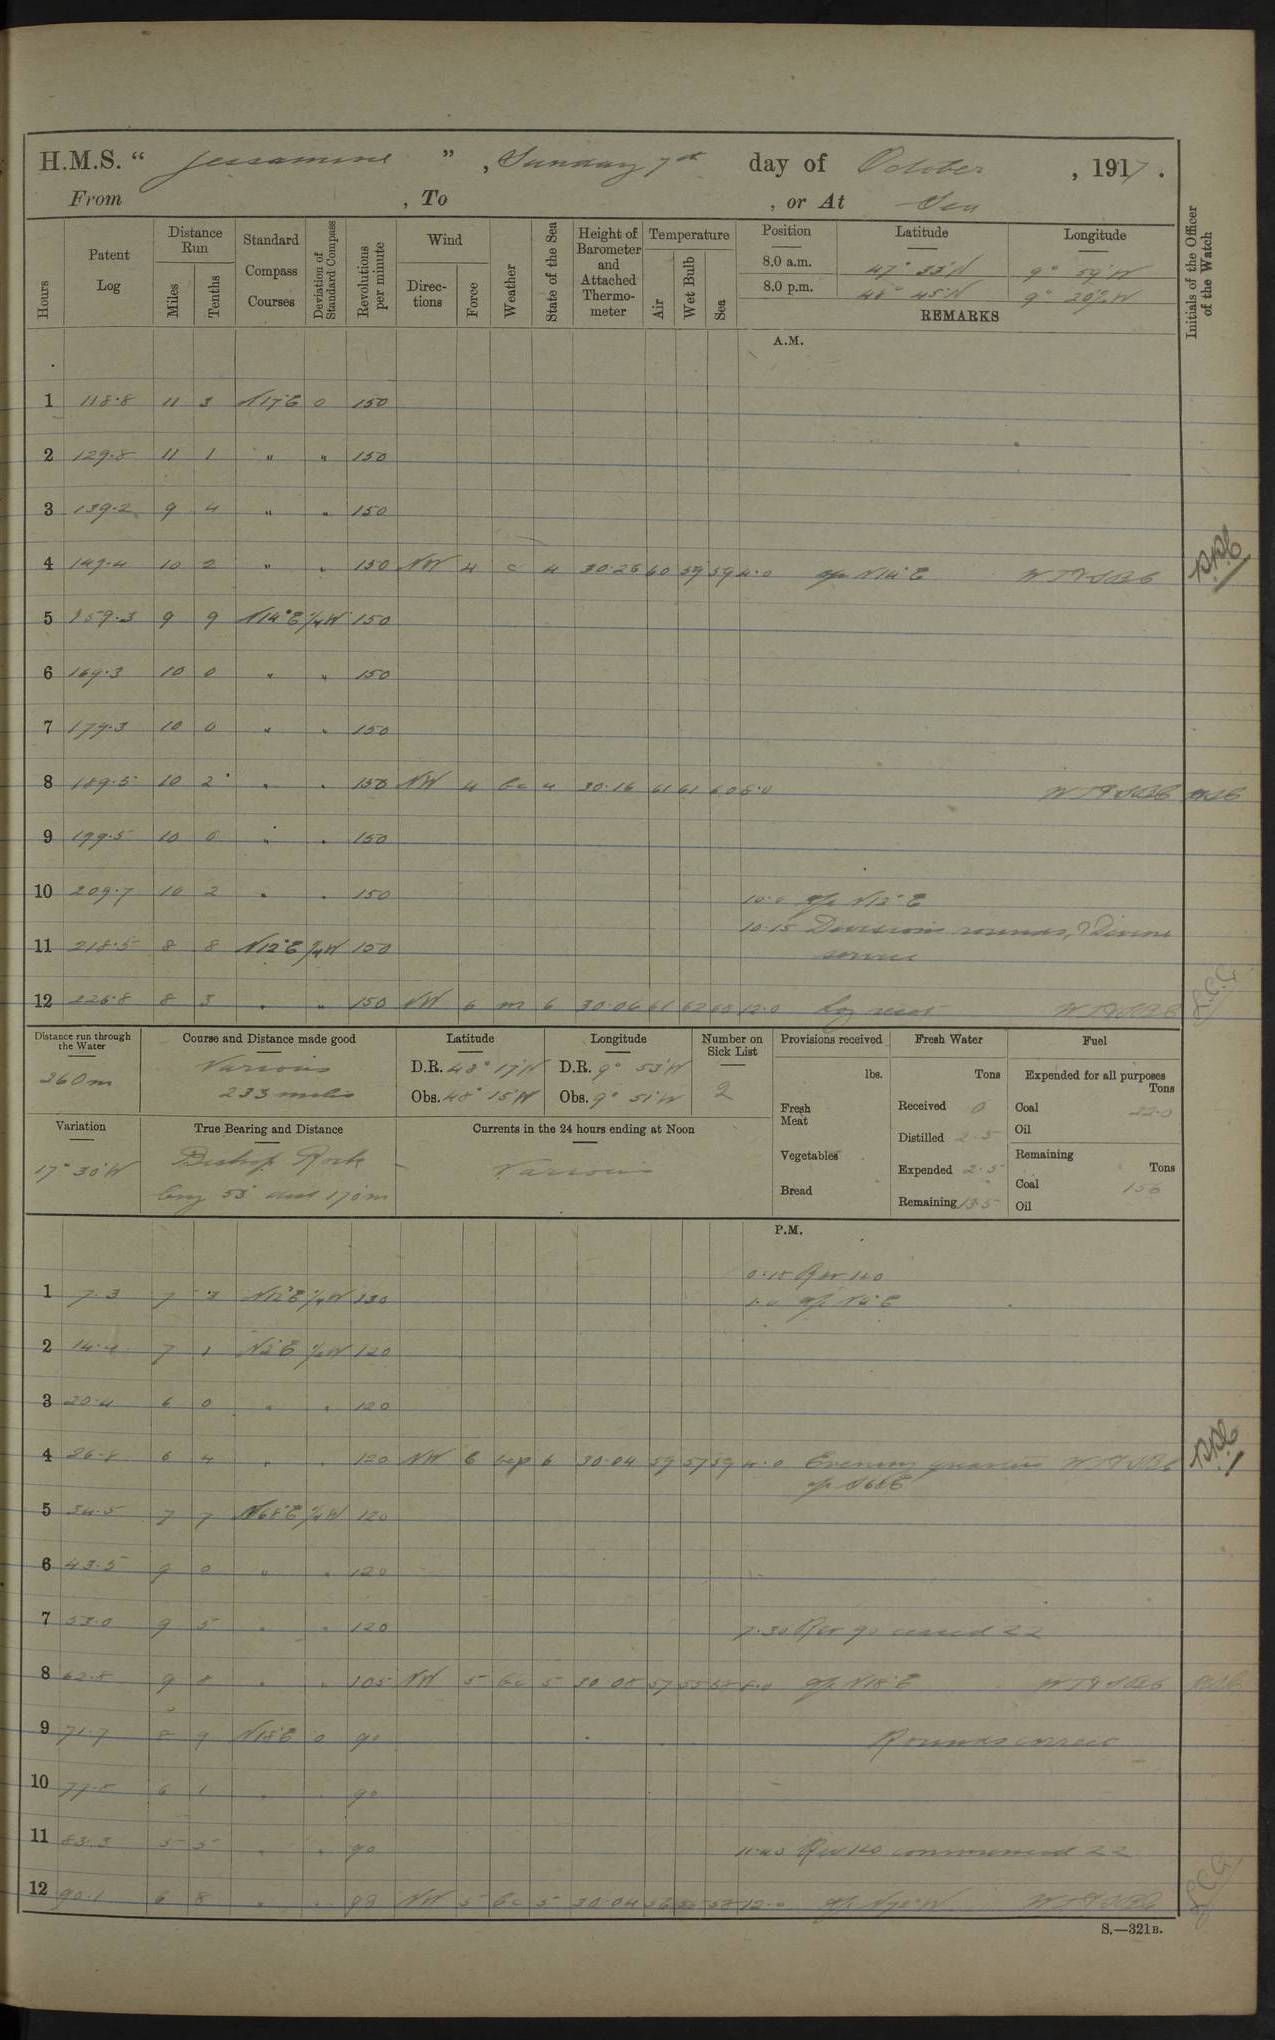 H.M.S. “ Jessamine ” , Sunday 7th day of October , 1917 .
From , To , or At Sea
Hours
Patent Log
Distance Run
Miles
Tenths
Standard Compass Courses
Deviation of Standard Compass
Revolutions per minute
Wind
Directions
Force
Weather
State of the Sea
Height of Barometer and Attached Thermometer
Temperature
Air
Wet Bulb
Sea
Position Latitude Longitude
8.0 a.m. 47° 33' N 9° 59' W
8.0 p.m. 48° 45' N 9° 20' W
REMARKS
Initials of the Officer of the Watch
A.M.
1 118.8 11 3 N17°E 0 150
2 129.8 11 1 " " 150
3 139.2 9 4 " " 150
4 149.4 10 2 " " 150 NW 4 c 4 30.26 60 59 59 4.0 a/c N14°E
5 159.3 9 9 N14°E ¼W 150
6 169.3 10 0 " " 150
7 179.3 10 0 " " 150
8 189.5 10 2 " " 150 NW 4 bc 4 30.16 61 61 60 8.0
9 199.5 10 0 " " 150
10 209.7 10 2 " " 150 10.0 a/c N12°E
10.15 Divisions rounds, & Divine
11 218.5 8 8 N12°E ¼W 150 service
12 226.8 8 3 " " 150 NW 6 m 6 30.06 61 62 60 12.0 Log reset
Distance run through the Water
260m
Course and Distance made good
Various
233 miles
Latitude
D.R. 48° 17' N
Obs. 48° 15' N
Longitude
D.R. 9° 53' W
Obs. 9° 51' W
Number on Sick List
2
Provisions received
lbs.
Fresh Meat
Vegetables
Bread
Fresh Water
Tons
Received 0
Distilled 2.5
Expended 2.5
Remaining 13.5
Fuel
Expended for all purposes
Tons
Coal 22.0
Oil
Remaining
Tons
Coal 156
Oil
Variation
17° 30' W
True Bearing and Distance
Bishop Rock
brg 53° dist 170m
Currents in the 24 hours ending at Noon
Various
P.M.
0.15 Rev 120
1 7.3 7 3 N12°E ¼W 130 1.0 a/c N2°E
2 14.4 7 1 N2°E 120
3 20.4 6 0 " " 120
4 26.8 6 4 " " 120 NW 6 6 30.04 59 57 59 4.0 Evening quarters
a/c N68E
5 34.5 7 7 N68°E ¼W 120
6 43.5 9 0 " " 120
7 53.0 9 5 " " 120 7.30 Rev 90 ceased ZZ
8 62.8 9 8 " " 105 NW 5 bc 5 30.08 57 55 58 8.0 a/c N18°E
9 71.7 8 9 N18°E 0 90 Rounds correct
10 77.8 6 1 " " 90
11 83.3 5 5 " " 90 11.40 Rev 120 commenced ZZ
12 90.1 6 8 " " 98 NW 5 bc 5 30.04 56 58 12.0
S.—321B.